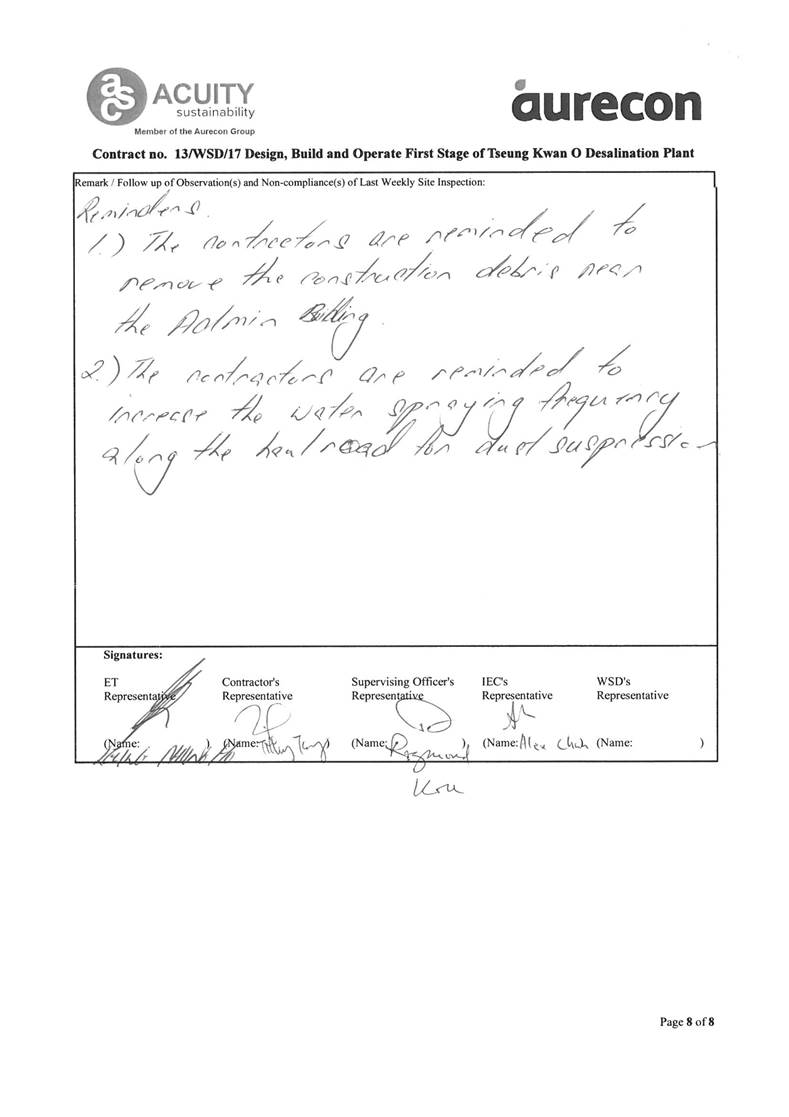 asc ACUITY
sustainability
Member of the Aurecon Group
aurecon
Contract no. 13/WSD/17 Design, Build and Operate First Stage of Tseung Kwan O Desalination Plant
Remark / Follow up of Observation(s) and Non-compliance(s) of Last Weekly Site Inspection:
Reminders.
1.) The contractors are reminded to
remove the construction debris near
the Admin Building.
2.) The contractors are reminded to
increase the water spraying frequency
along the haul road for dust suspression
Signatures:
ET Representative
Contractor's Representative
Supervising Officer's Representative
IEC's Representative
WSD's Representative
(Name: )
(Name: )
(Name: Raymond )
(Name: Alex Chan
(Name: )
Page 8 of 8